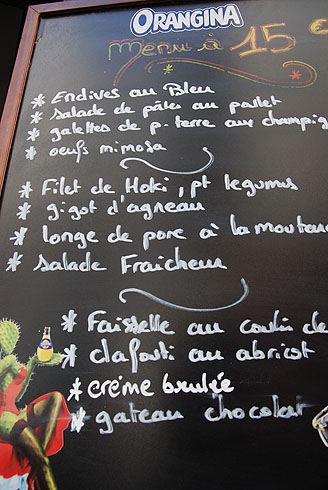 ORANGINA
Menu à 15 €
* Endives au Bleu
* salade de pâtes au poulet
* galettes de p. terre aux champig
* oeufs mimosa
* Filet de Hoki, pt legumes
* gigot d'agneau
* longe de porc à la moutar
* Salade Fraicheur
* Faisselle au coulis de
* clafouti au abricot
* créme brulée
* gateau chocolat